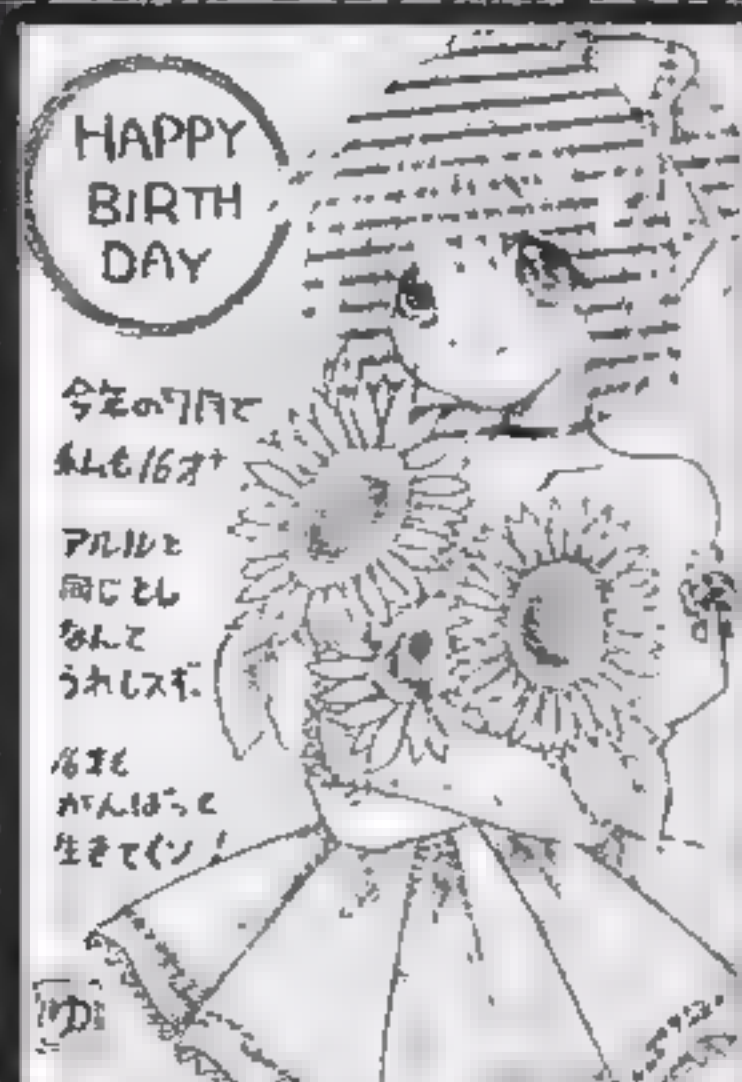 HAPPY
BIRTH
DAY
今年の7月で
私も16才+
アルルと
同じとし
なんて
うれしスギ.
16才も
がんばって
生きてくゾ!
ゆ